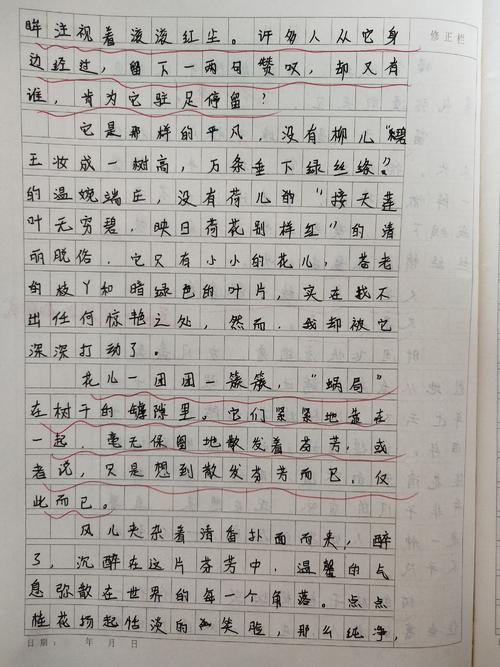 眸注视着滚滚红尘。许多人从它身
修正栏
边经过，留下一两句赞叹，却又有
谁，肯为它驻足停留？
它是那样的平凡，没有柳儿“碧
玉妆成一树高，万条垂下绿丝绦”
的温婉端庄，没有荷儿的“接天莲
叶无穷碧，映日荷花别样红”的清
丽脱俗，它只有小小的花儿，苍老
的枝丫和暗绿色的叶片，实在找不
出任何惊艳之处，然而，我却被它
深深打动了。
花儿一团团一簇簇，“蜗局”
在树干的缝隙里。它们紧紧地靠在
一起，毫无保留地散发着芬芳，或
者说，只是想到散发芬芳而已，仅
此而已。
风儿夹杂着清香扑面而来，醉
了，沉醉在这片芬芳中，温馨的气
息弥散在世界的每一个角落。点点
桂花扬起恬淡的笑脸，那么纯净，
日期： 年 月 日